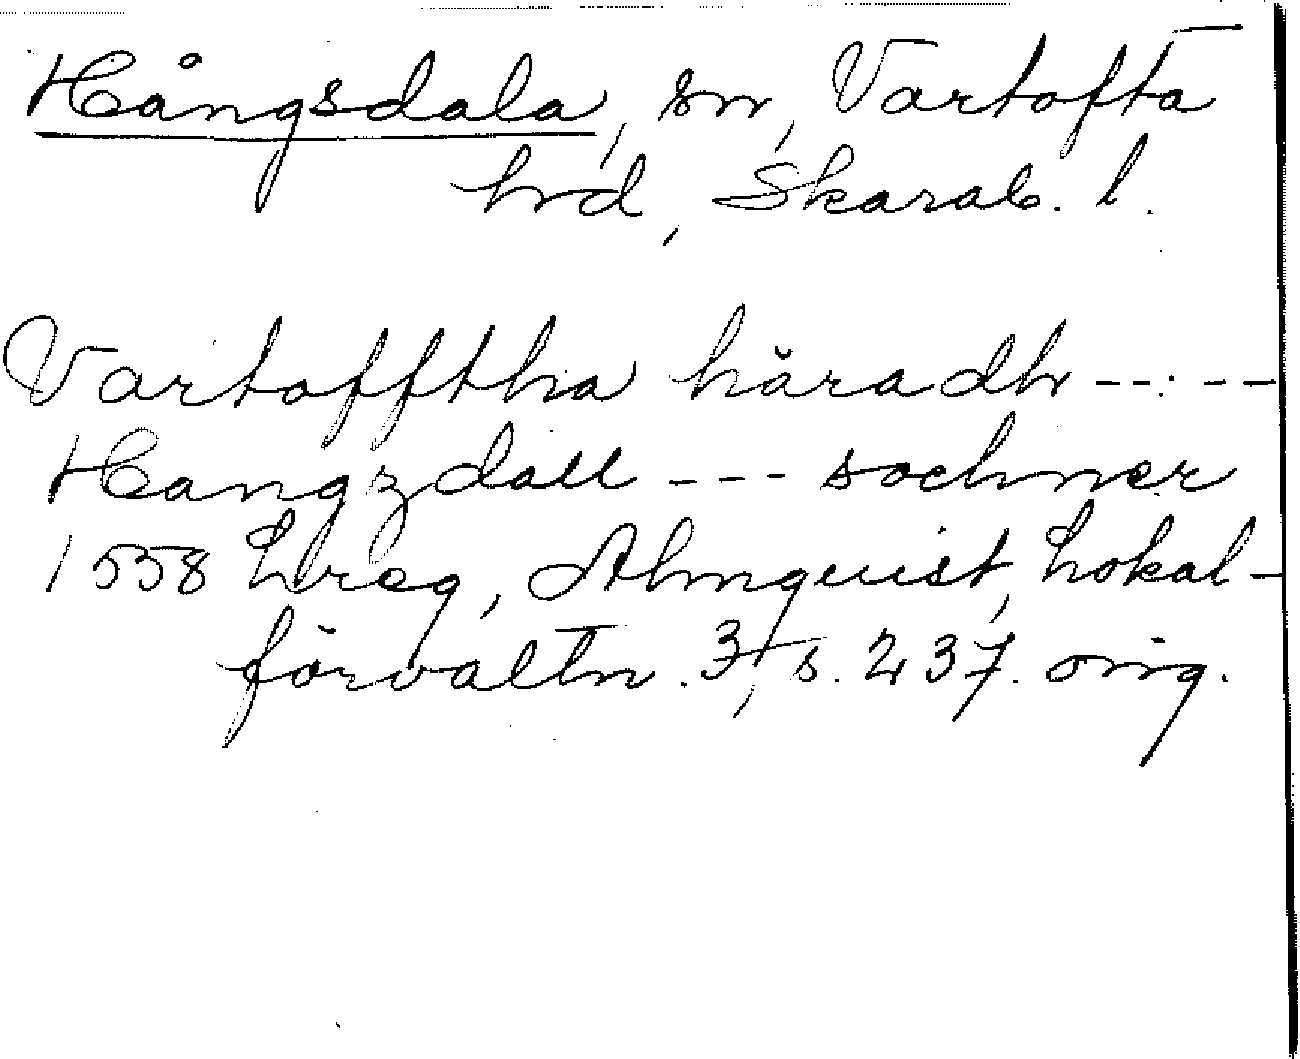 Hångsdala, sn, Vartofta
hrd, Skarab. l.
Vartofftha häradh -----
Hangzdall --- sochner
1558 Lreg, Almquist, Lokal-
förvaltn. 3, s. 237. orig.